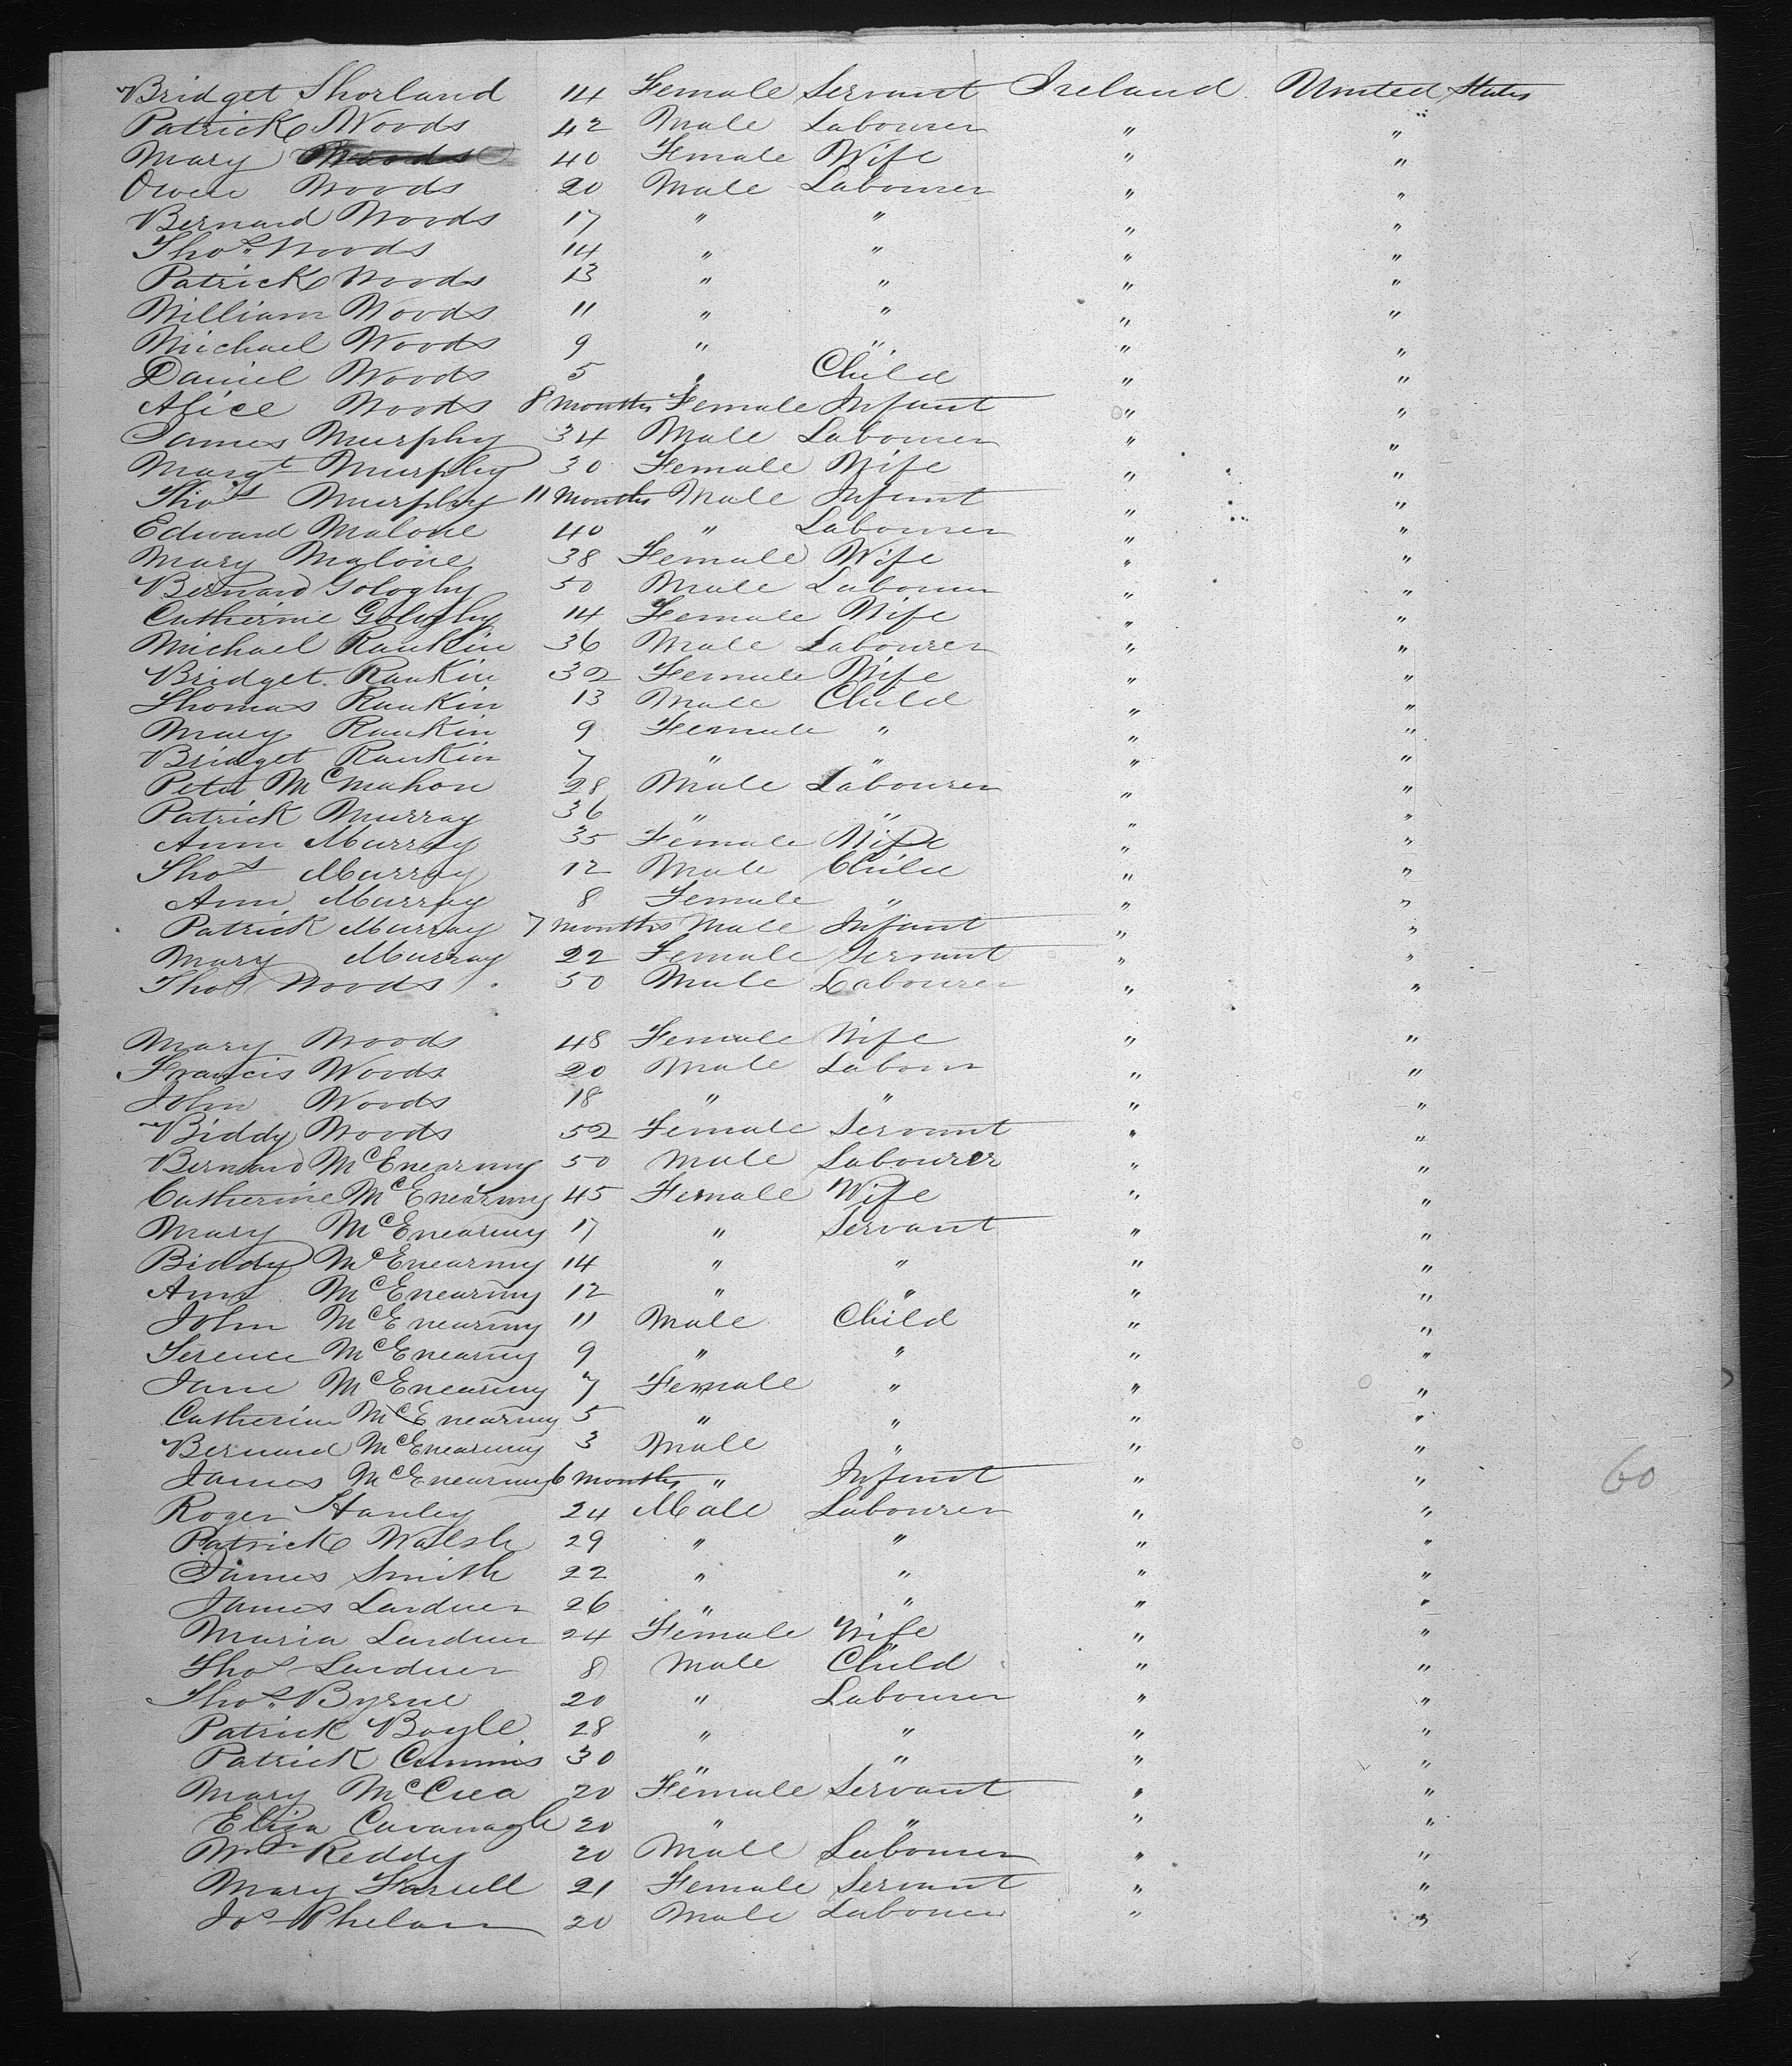 Bridget Shorland 14 Female Servant Ireland United States
Patrick Woods 42 Male Labourer " "
Mary Woods 40 Female Wife " "
Owen Woods 20 Male Labourer " "
Bernard Woods 17 " " " "
Thos. Woods 14 " " " "
Patrick Woods 13 " " " "
William Woods 11 " " " "
Michael Woods 9 " " " "
Daniel Woods 5 " Child " "
Alice Woods 8 months Female Infant " "
James Murphy 34 Male Labourer " "
Margt Murphy 30 Female Wife " "
Thos Murphy 11 months Male Infant " "
Edward Malone 40 " Labourer " "
Mary Malone 38 Female Wife " "
Bernard Gologhy 50 Male Labourer " "
Catherine Gologhy 14 Female Wife " "
Michael Rankin 36 Male Labourer " "
Bridget Rankin 32 Female Wife " "
Thomas Rankin 13 Male Child " "
Mary Rankin 9 Female " " "
Bridget Rankin 7 " " " "
Peter McMahon 28 Male Labourer " "
Patrick Murray 36 " " " "
Ann Murray 35 Female Wife " "
Thos Murray 12 Male Child " "
Ann Murray 8 Female " " "
Patrick Murray 7 months Male Infant " "
Mary Murray 22 Female Servant " "
Thos Woods 50 Male Labourer " "
Mary Woods 48 Female Wife " "
Francis Woods 20 Male Labour " "
John Woods 18 " " " "
Biddy Woods 52 Female Servant " "
Bernard McEnearny 50 Male Labourer " "
Catherine McEnearny 45 Female Wife " "
Mary McEnearny 17 " Servant " "
Biddy McEnearny 14 " " " "
Ann McEnearny 12 " " " "
John McEnearny 11 Male Child " "
Terence McEnearny 9 " " " "
Jane McEnearny 7 Female " " "
Catherine McEnearny 5 " " " "
Bernard McEnearny 3 Male " " "
James McEnearny 6 months " Infant " " 60
Roger Hanley 24 Male Labourer " "
Patrick Walsh 29 " " " "
James Smith 22 " " " "
James Lardner 26 " " " "
Maria Lardner 24 Female Wife " "
Thos Lardner 8 Male Child " "
Thos. Byrne 20 " Labourer " "
Patrick Boyle 28 " " " "
Patrick Cummins 30 " " " "
Mary McCrea 20 Female Servant " "
Eliza Cavanagh 20 " " " "
Wm Reddy 20 Male Labourer " "
Mary Farrell 21 Female Servant " "
Jos Phelan 20 Male Labourer " "